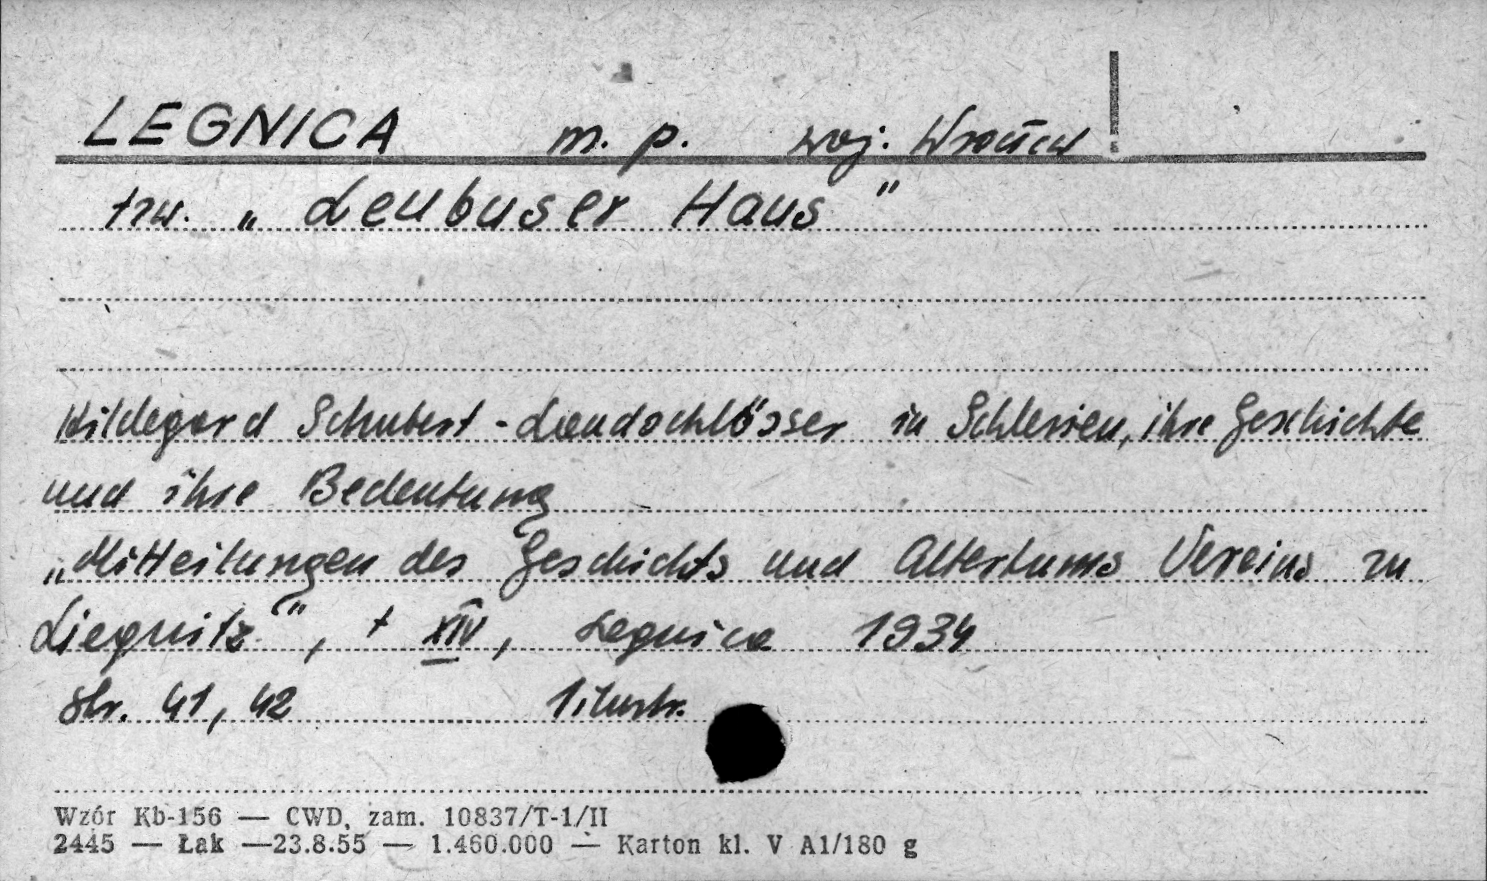 LEGNICA m. p. woj. Wrocław
tzw. „Leubuser Haus"
Hildegard Schubert - Landschlösser in Schlesien, ihre Geschichte
und ihre Bedeutung
„Mitteilungen des Geschichts und Altertums Vereins zu
Liegnitz", t XIV, Legnica 1934
str. 41, 42 1 ilustr.
Wzór Kb-156 — CWD, zam. 10837/T-1/II
2445 — Łak —23.8.55 — 1.460.000 — Karton kl. V A1/180 g